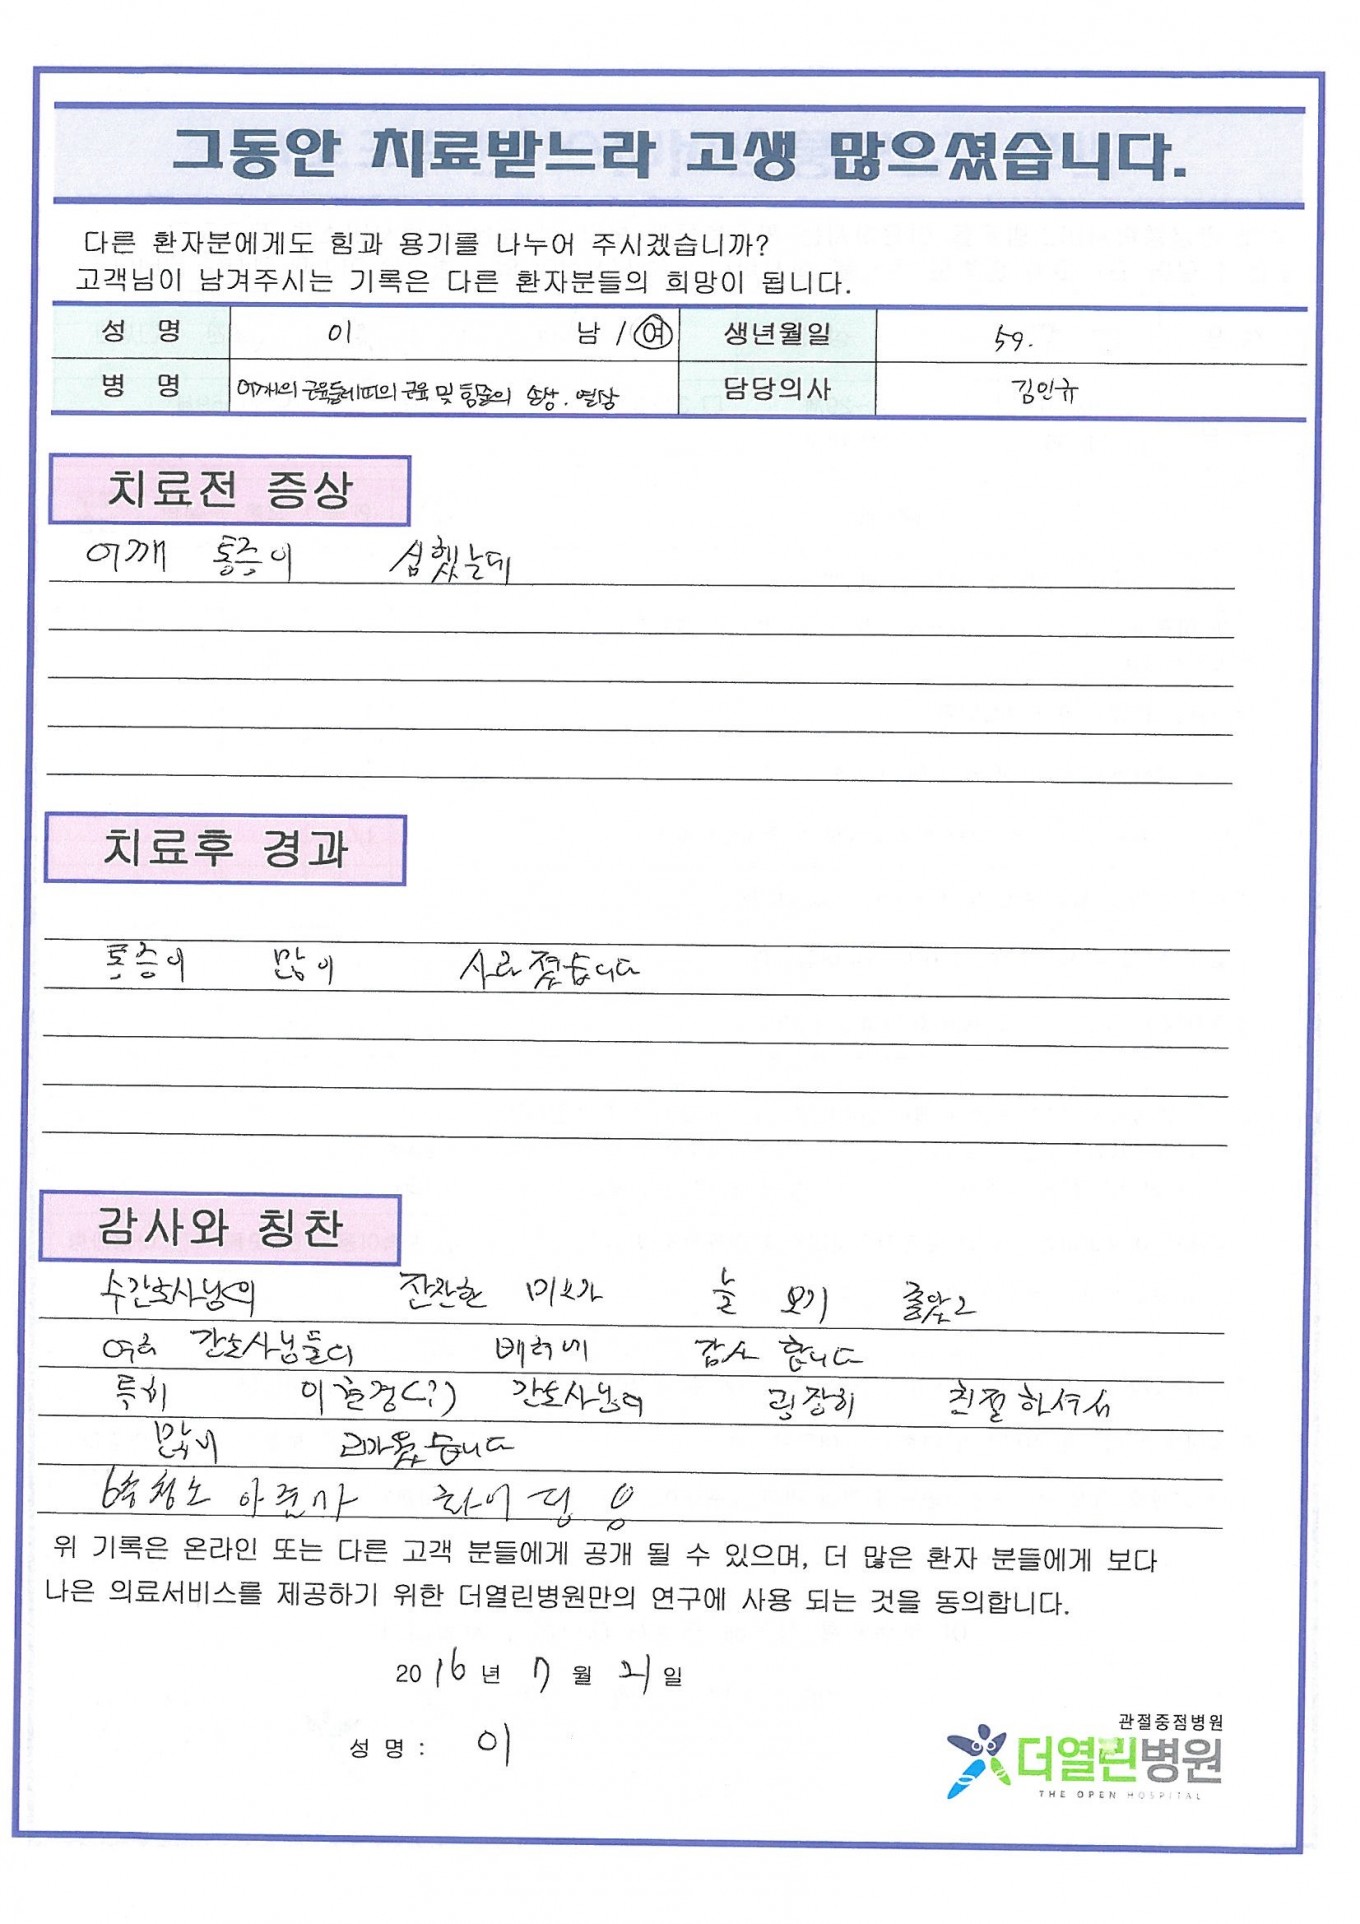 그동안 치료받느라 고생 많으셨습니다.
다른 환자분에게도 힘과 용기를 나누어 주시겠습니까?
고객님이 남겨주시는 기록은 다른 환자분들의 희망이 됩니다.
성 명 이 남 / 여 생년월일 59.
병 명 어깨의 근육둘레띠의 근육 및 힘줄의 손상. 열상 담당의사 김인규
치료전 증상
어깨 통증이 심했는데
치료후 경과
통증이 많이 사라졌습니다
감사와 칭찬
수간호사님의 잔잔한 미소가 늘 보기 좋았고
여러 간호사님들의 배려에 감사 합니다
특히 이 경(?) 간호사님의 굉장히 친절하셔서
많이 고마웠습니다
청소 아줌마 화이팅
위 기록은 온라인 또는 다른 고객 분들에게 공개 될 수 있으며, 더 많은 환자 분들에게 보다
나은 의료서비스를 제공하기 위한 더열린병원만의 연구에 사용 되는 것을 동의합니다.
2016년 7월 21일
성 명 : 이
관절중점병원
더열린병원
THE OPEN HOSPITAL